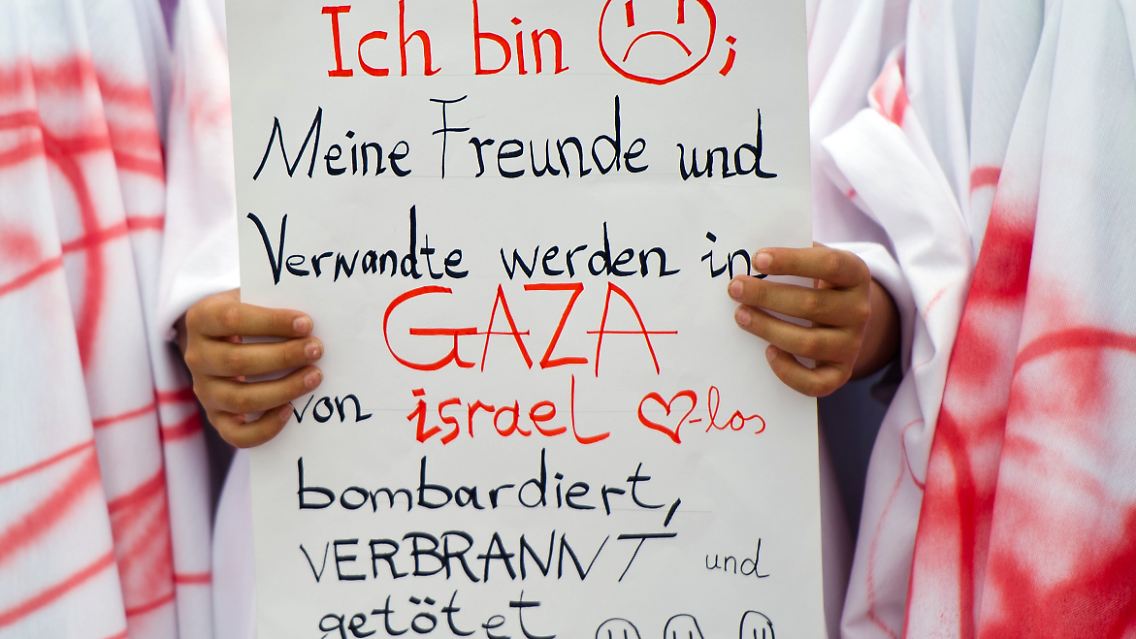 Ich bin ☹;
Meine Freunde und
Verwandte werden in
GAZA
von israel ♡-los
bombardiert,
VERBRANNT und
getötet